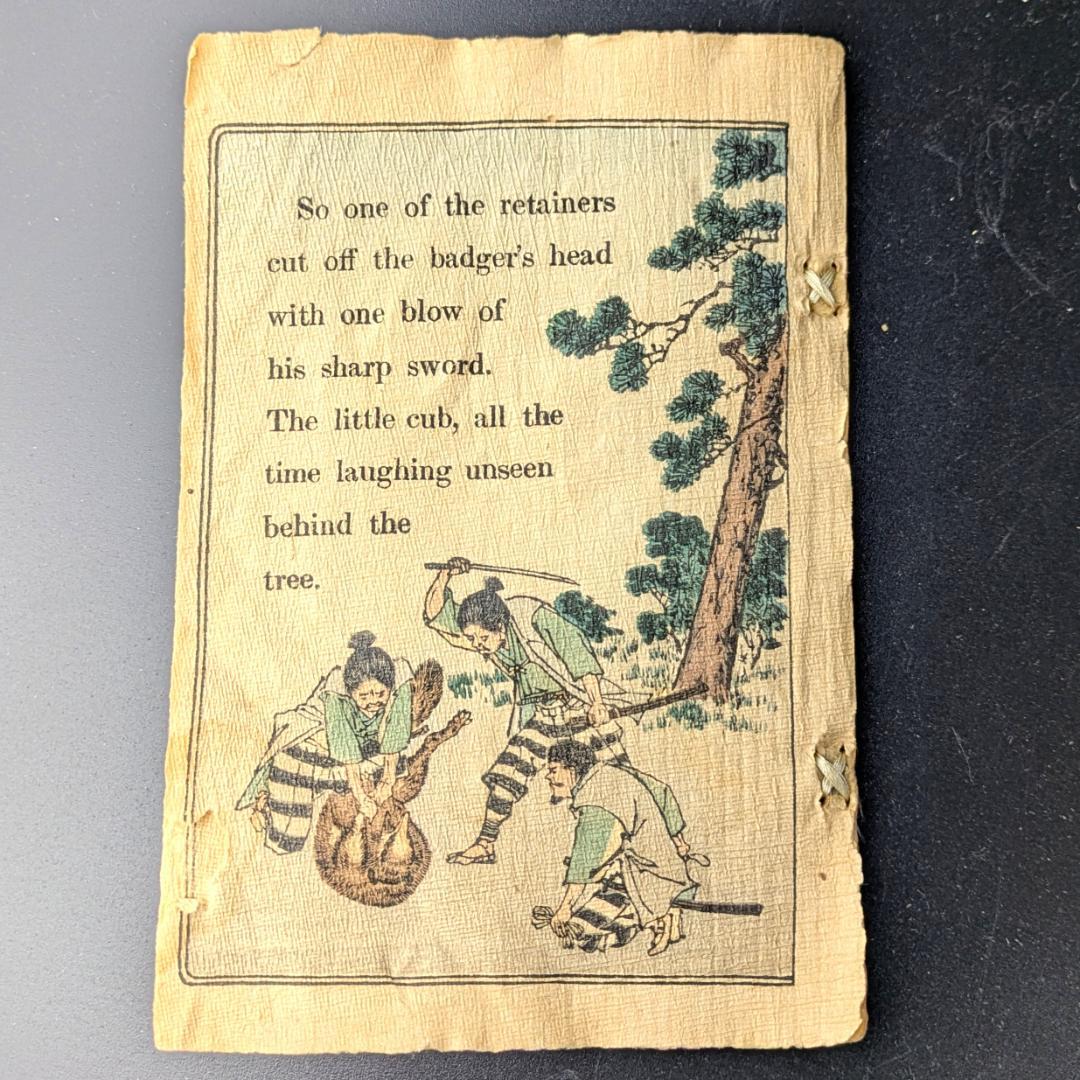 So one of the retainers
cut off the badger's head
with one blow of
his sharp sword.
The little cub, all the
time laughing unseen
behind the
tree.